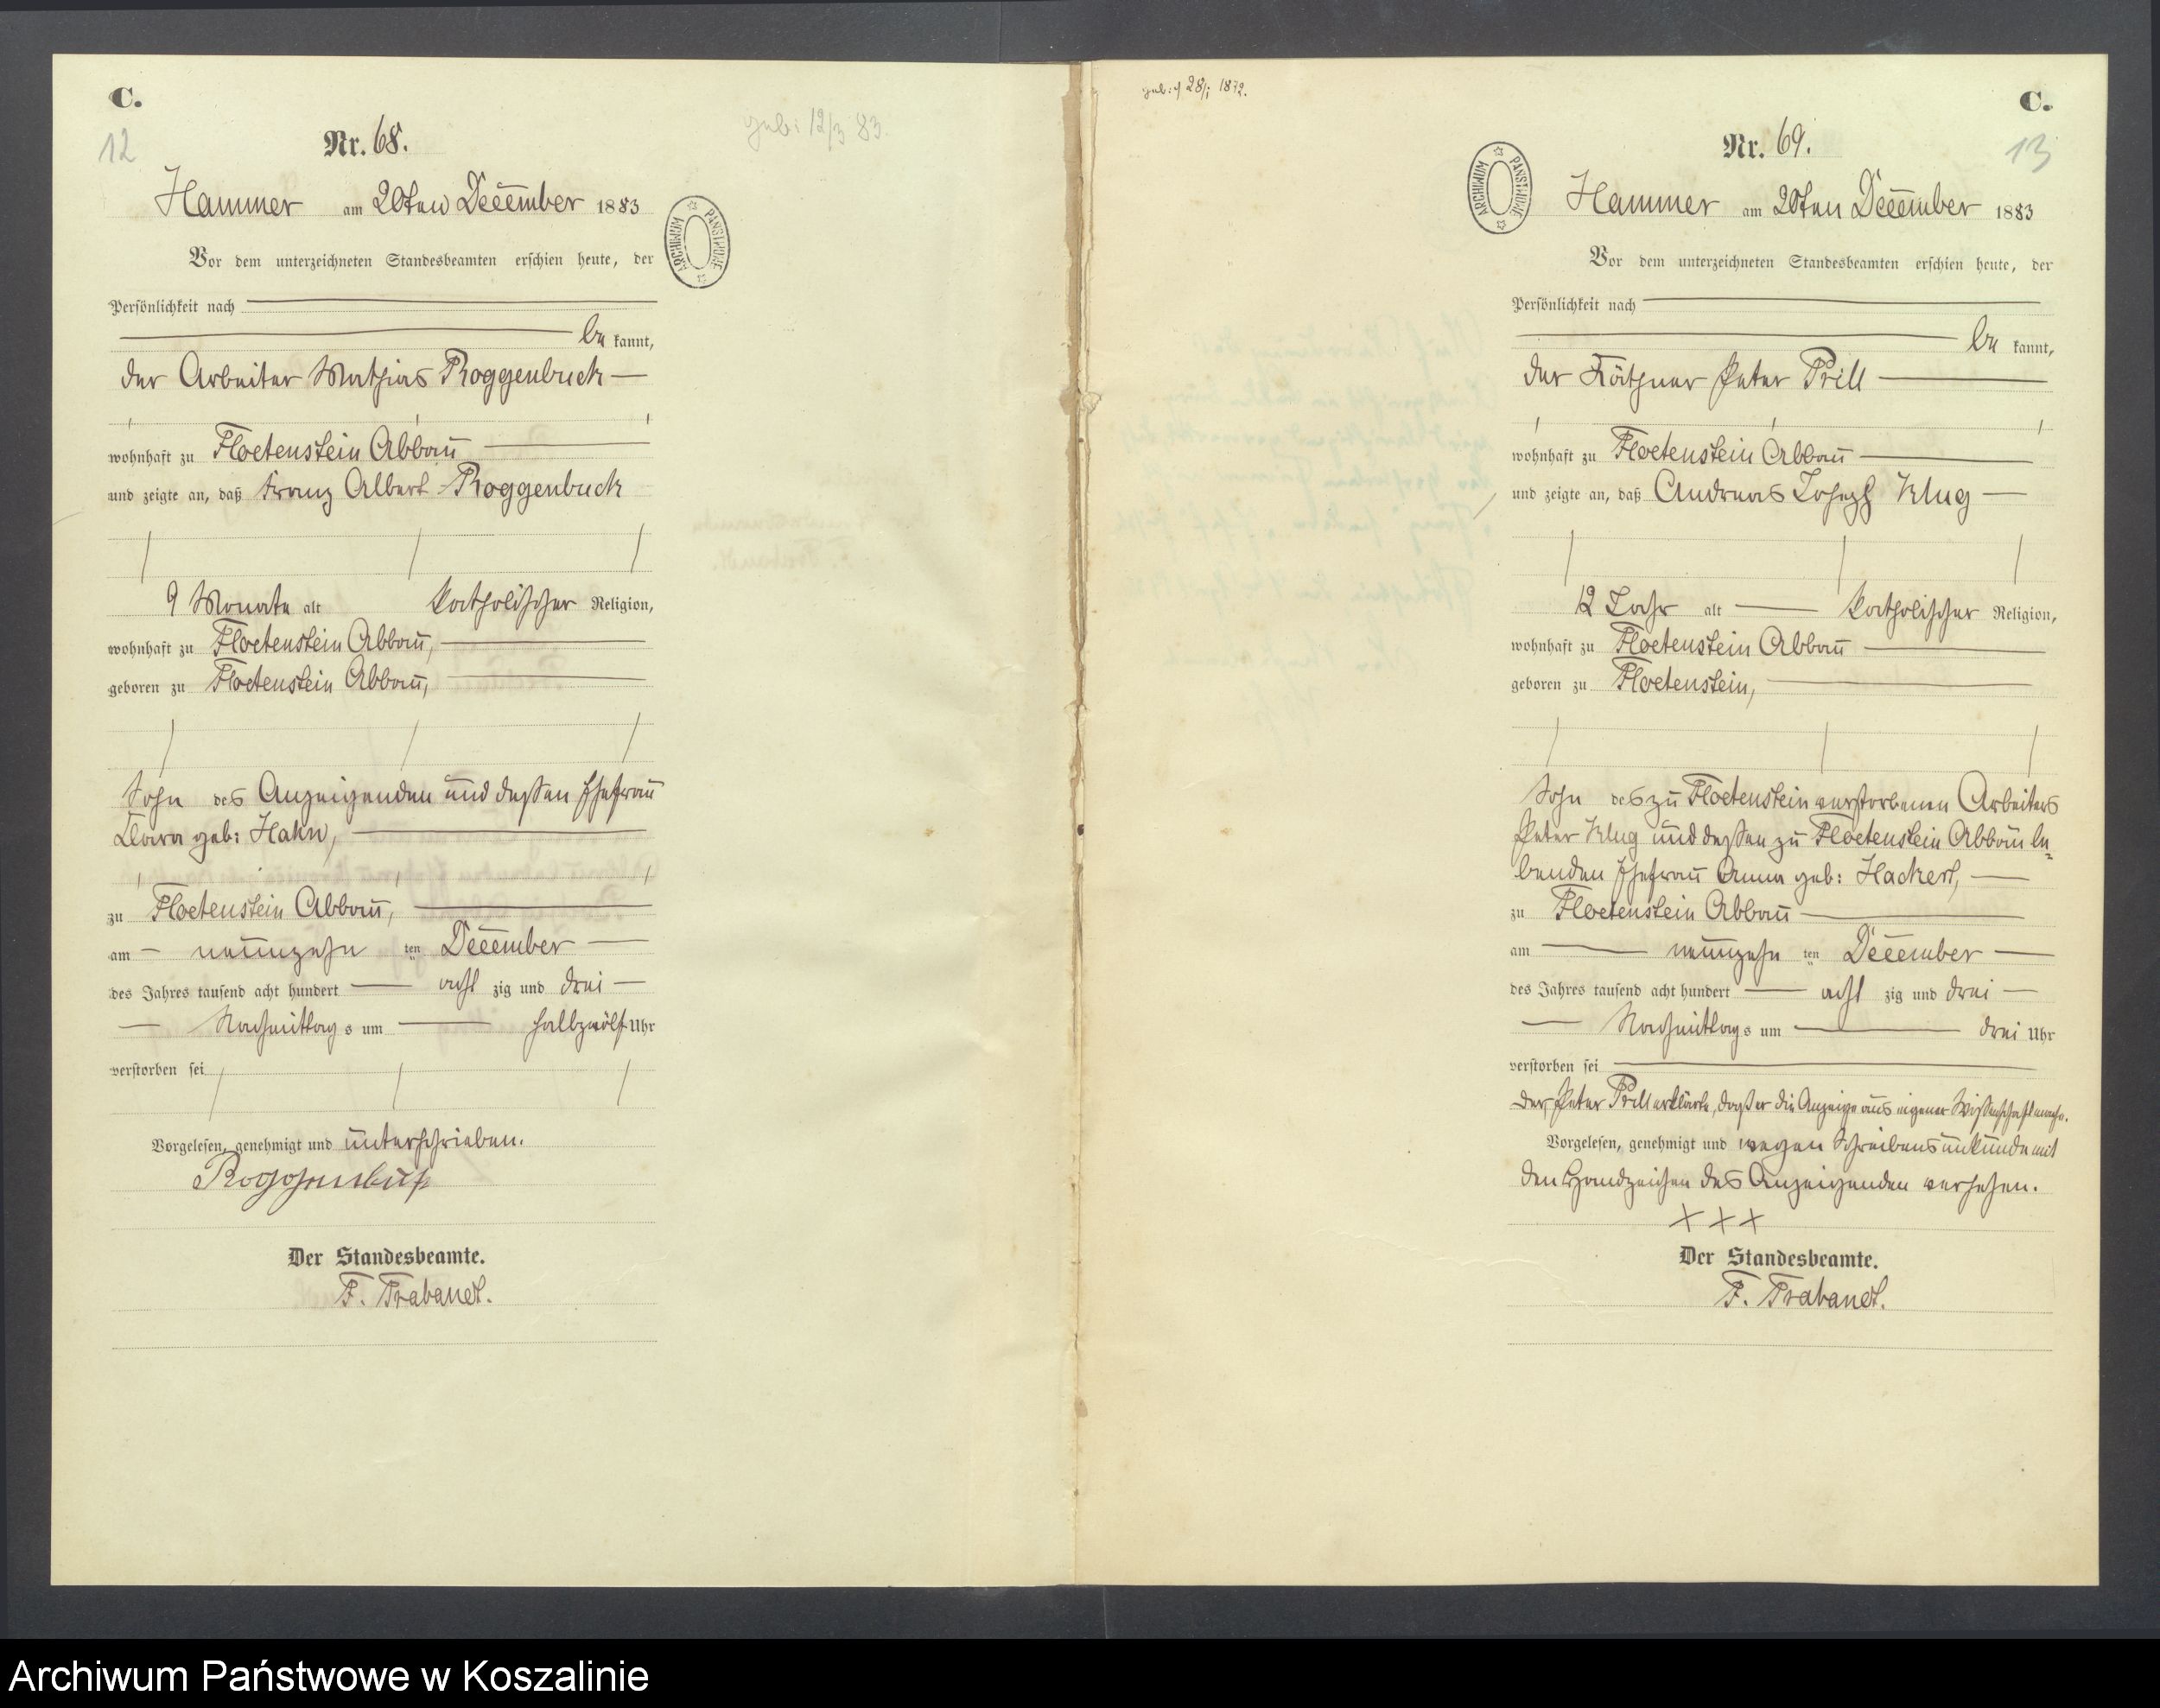 C.
12
Nr. 68.
geb: 12/3 83.
Hammer am 20ten December 1883
ARCHIWUM PAŃSTWOWE
Vor dem unterzeichneten Standesbeamten erschien heute, der
Persönlichkeit nach
be kannt,
der Arbeiter Mathias Roggenbuck
wohnhaft zu Floetenstein Abbau
und zeigte an, daß Franz Albert Roggenbuck
9 Monate alt katholischer Religion,
wohnhaft zu Floetenstein Abbau,
geboren zu Floetenstein Abbau,
Sohn des Anzeigenden und dessen Ehefrau
Clara geb: Hahn,
zu Floetenstein Abbau,
am neunzehn ten December
des Jahres tausend acht hundert acht zig und drei
Nachmittag s um halbzwölf Uhr
verstorben sei
Vorgelesen, genehmigt und unterschrieben.
Roggenbuck
Der Standesbeamte.
F. Trabandt.
geb: d 28/1 1872.
C.
13
Nr. 69.
ARCHIWUM PAŃSTWOWE
Hammer am 20ten December 1883
Vor dem unterzeichneten Standesbeamten erschien heute, der
Persönlichkeit nach
be kannt,
der Käthner Peter Prill
wohnhaft zu Floetenstein Abbau
und zeigte an, daß Andreas Joseph Klug
12 Jahr alt katholischer Religion,
wohnhaft zu Floetenstein Abbau
geboren zu Floetenstein,
Sohn des zu Floetenstein verstorbenen Arbeiters
Peter Klug und dessen zu Floetenstein Abbau le=
benden Ehefrau Anna geb: Hackert,
zu Floetenstein Abbau
am neunzehn ten December
des Jahres tausend acht hundert acht zig und drei
Nachmittag s um drei Uhr
verstorben sei
Der Peter Prill erklärte, daß er die Anzeige aus eigener Wissenschaft mache.
Vorgelesen, genehmigt und wegen Schreibensunkunde mit
den Handzeichen des Anzeigenden versehen.
+++
Der Standesbeamte.
F. Trabandt.
Archiwum Państwowe w Koszalinie